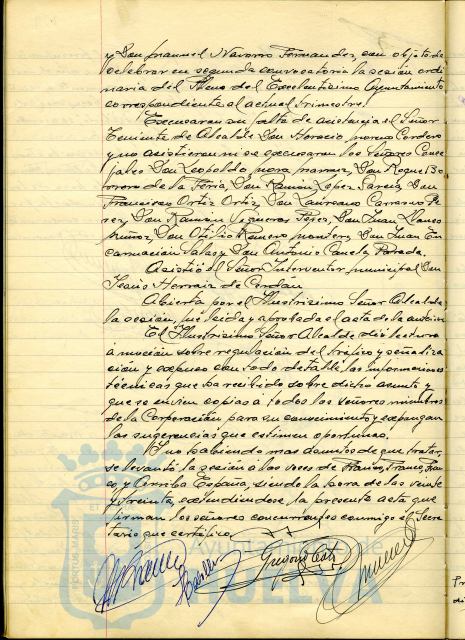 y Don Manuel Navarro Fernandez, con objeto de
celebrar en segunda convocatoria la sesión ordi
naria del Pleno del Excelentísimo Ayuntamiento
correspondiente al actual trimestre.
Excusaron su falta de asistencia el Señor
Teniente de Alcalde Don Horacio Moreno Cordero
y no asistieron ni se excusaron los Señores Conce
jales Don Leopoldo Don Roque Bo
rrero de la Feria, Don Ramón Lopez García, Don
Francisco Ortiz Ortiz, Don Laureano Carrasco Pe
rez, Don Ramón Vigueras Perez, Don Juan Llanes
Muñoz, Don Otilio Romero Don Juan En
carnación Salas y Don Antonio Canela Parada
Asistió el Señor Interventor municipal Don
Herraiz de
Abierta por el Ilustrisimo Señor Alcalde
la sesión, fué leida y aprobada el acta de la anterior.
El Ilustrisimo Señor Alcalde dió lectura
a moción sobre regulación del tráfico y señaliza
ción y expuso con todo detalle las informaciones
técnicas que ha recibido sobre dicho asunto y
que se envien copias a todos los señores miembros
de la Corporación para su conocimiento y expongan
las sugerencias que estimen oportunas.
Y no habiendo mas asuntos de que tratar,
se levantó la sesión a las voces de Franco, Franco, Fran
co, y Arriba España, siendo la hora de las veinte
y treinta, extendiendose, la presente acta que
firman los señores concurrentes conmigo el Secre
tario que certifico
Ayuntamiento de
HUELVA
PORTUS MARIS
ET